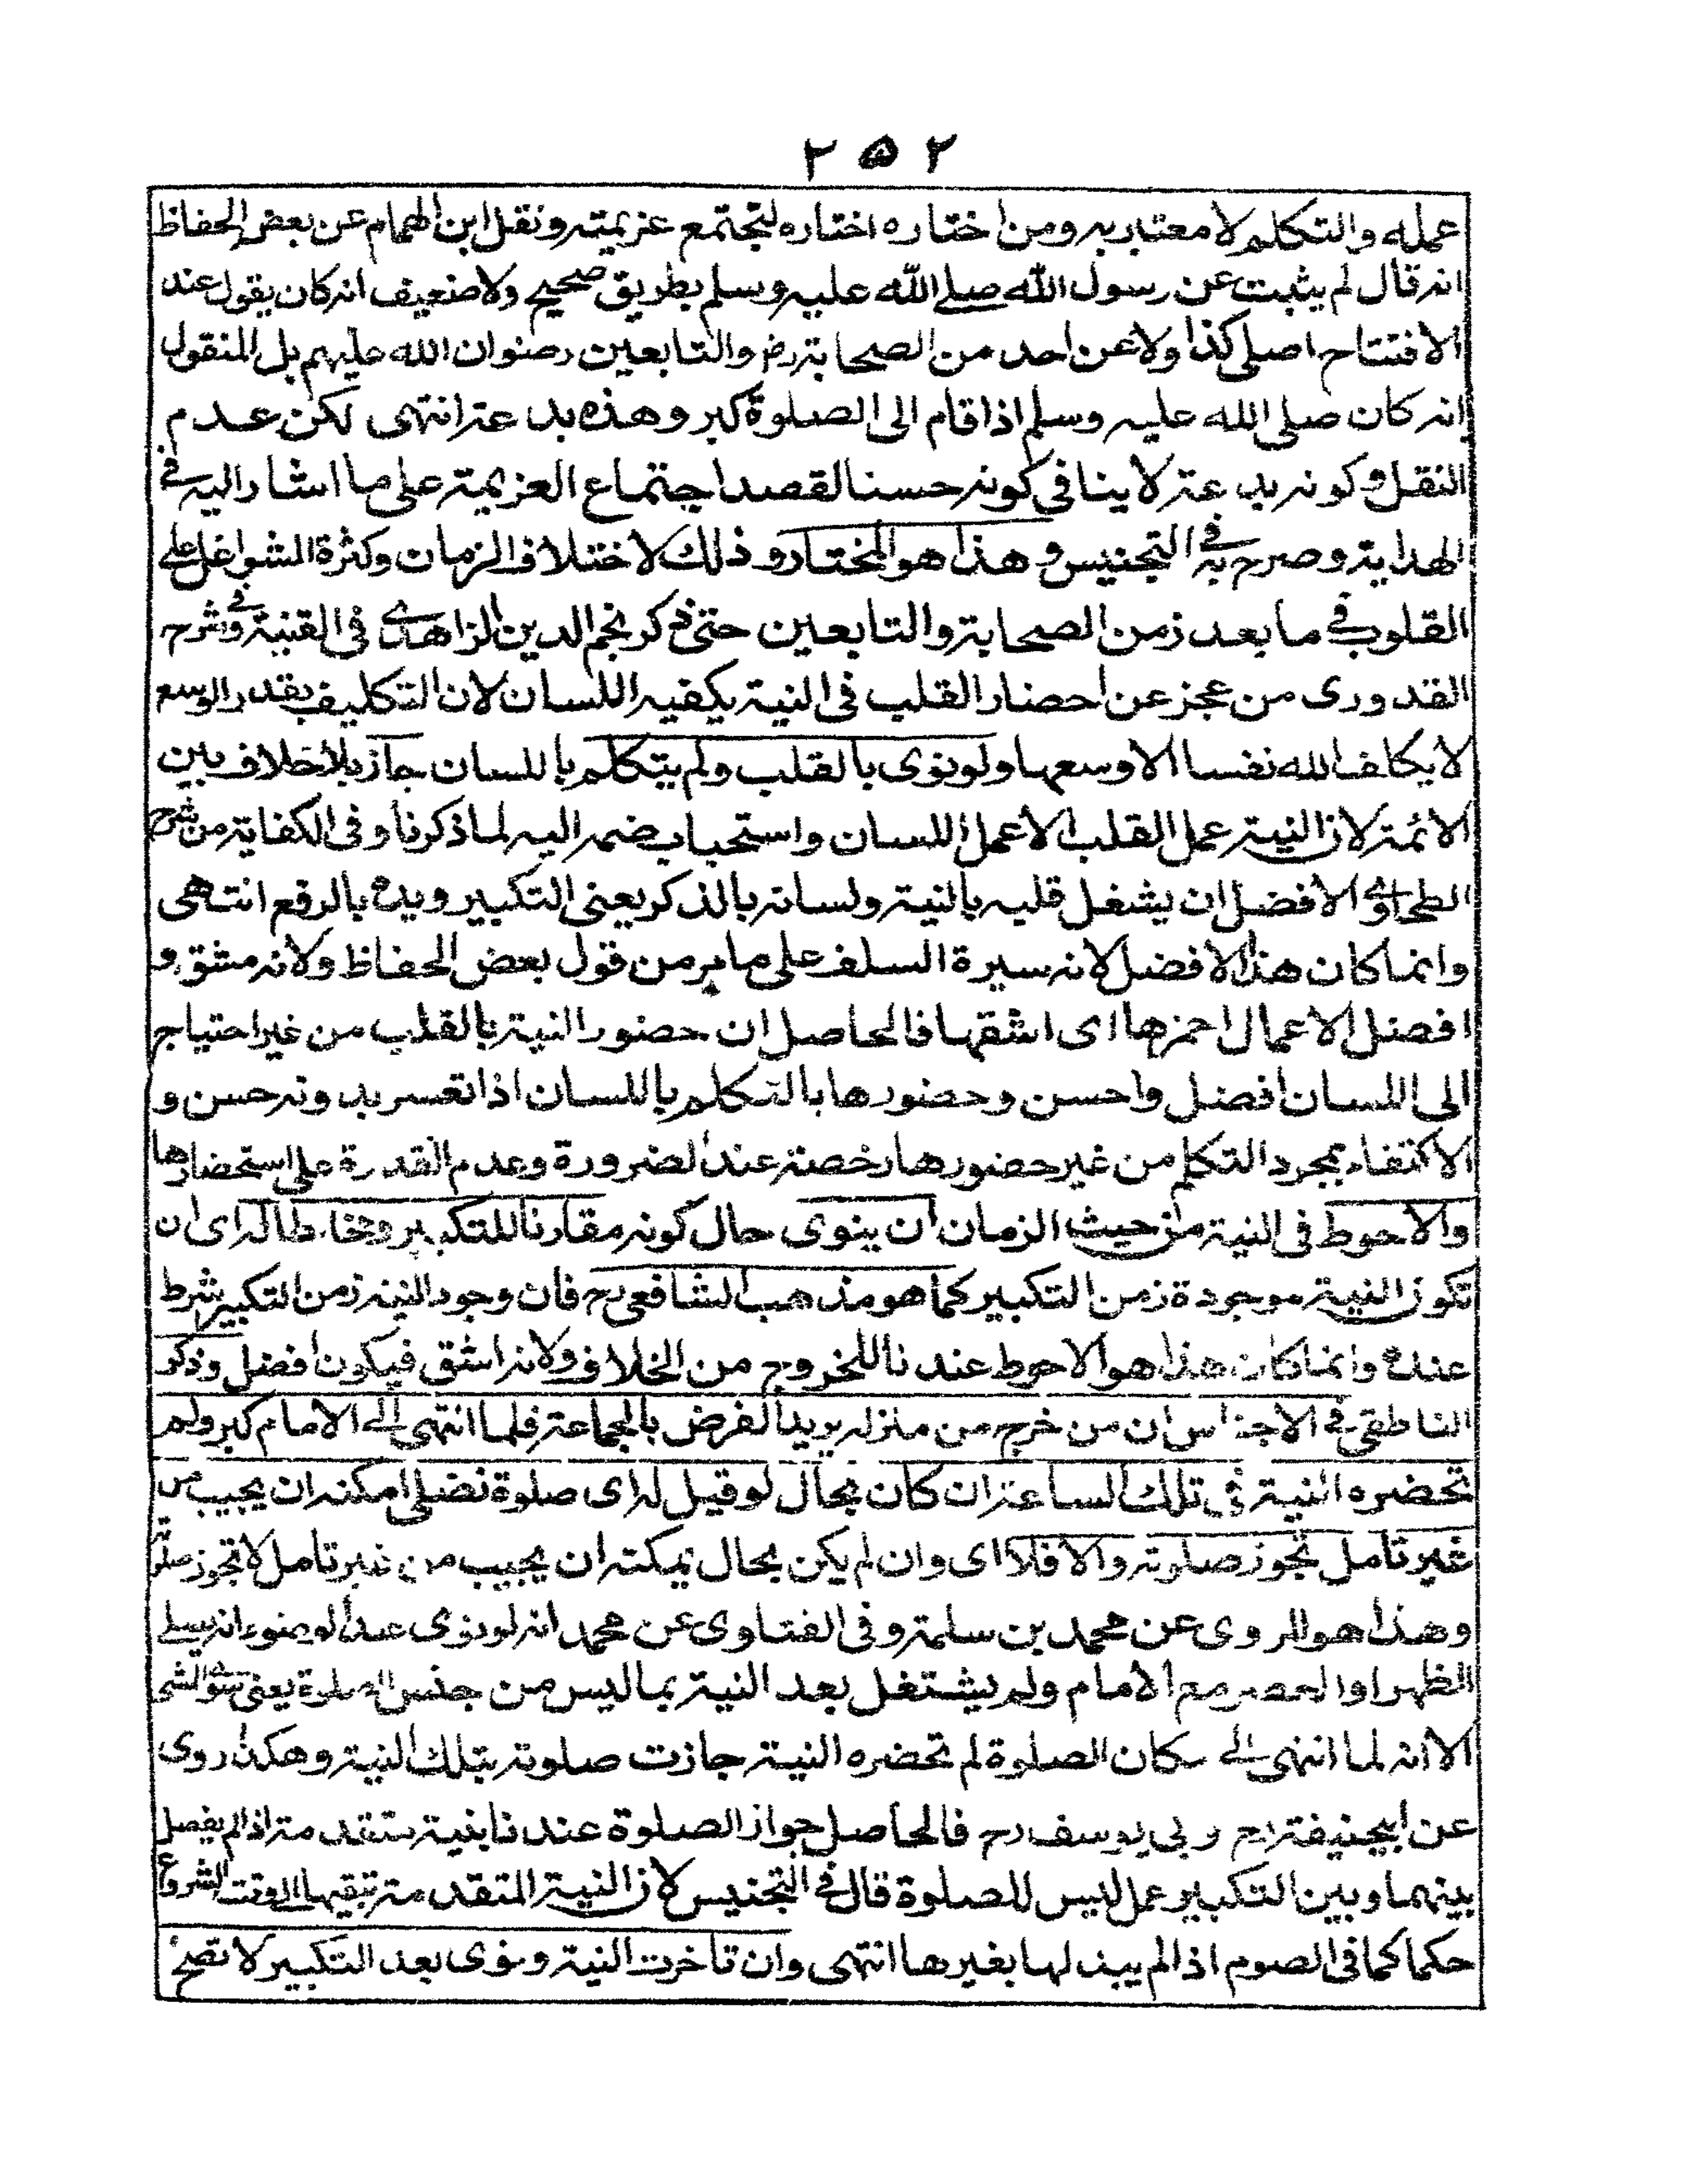 ٢٥٢
عمله والتكلم لا معتبر به ومن اختاره اختاره لتجتمع عزيمته ونقل ابن الهمام عن بعض الحفاظ
انه قال لم يثبت عن رسول الله صلى الله عليه وسلم بطريق صحيح ولا ضعيف انه كان يقول عند
الافتتاح اصلي كذا ولا عن احد من الصحابة رض والتابعين رضوان الله عليهم بل المنقول
انه كان صلى الله عليه وسلم اذا قام الى الصلوة كبر وهذه بدعة انتهى لكن عدم
النقل وكونه بدعة لا ينافي كونه حسنا لقصد اجتماع العزيمة على ما اشار اليه في
الهداية وصرح به في التجنيس وهذا هو المختار وذلك لاختلاف الزمان وكثرة الشواغل على
القلوب في ما بعد زمن الصحابة والتابعين حتى ذكر نجم الدين الزاهدي في القنية وفي شرح
القدوري من عجز عن احضار القلب في النية يكفيه اللسان لان التكليف بقدر الوسع
لا يكلف الله نفسا الا وسعها ولو نوى بالقلب ولم يتكلم باللسان جاز بلا خلاف بين
الائمة لان النية عمل القلب لا عمل اللسان واستحباب ضمه اليه لما ذكرنا وفي الكفاية من شرح
الطحاوي الافضل ان يشغل قلبه بالنية ولسانه بالذكر يعني التكبير ويده بالرفع انتهى
وانما كان هذا الافضل لانه سيرة السلف على ما مر من قول بعض الحفاظ ولانه مشق و
افضل الاعمال احمزها اى اشقها فالحاصل ان حضور النية بالقلب من غير احتياج
الى اللسان افضل واحسن وحضورها بالتكلم باللسان اذا تعسر بدونه حسن و
الاكتفاء بمجرد التكلم من غير حضورها رخصة عند الضرورة وعدم القدرة على استحضارها
والاحوط في النية من حيث الزمان ان ينوى حال كونه مقارنا للتكبير ومخالطا له اى ان
تكون النية موجودة زمن التكبير كما هو مذهب الشافعي رح فان وجود النية زمن التكبير شرط
عنده وانما كان هذا هو الاحوط عندنا للخروج من الخلاف ولانه اشق فيكون افضل وذكر
الناطقي في الاجناس ان من خرج من منزله يريد الفرض بالجماعة فلما انتهى الى الامام كبر ولم
تحضره النية في تلك الساعة ان كان بحال لو قيل له اى صلوة تصلي امكنه ان يجيب من
غير تامل تجوز صلوته والا فلا اى وان لم يكن بحال يمكنه ان يجيب من غير تامل لا تجوز صلوته
وهذا هو المروى عن محمد بن سلمة وفي الفتاوى عن محمد انه لو نوى عند الوضوء انه يصلي
الظهر او العصر مع الامام ولم يشتغل بعد النية بما ليس من جنس الصلوة يعني سوى المشي
الا انه لما انتهى الى مكان الصلوة لم تحضره النية جازت صلوته بتلك النية وهكذا روى
عن ابيحنيفة رح وبي يوسف رح فالحاصل جواز الصلوة عندنا بنية متقدمة اذا لم يفصل
بينهما وبين التكبير عمل ليس للصلوة قال في التجنيس لان النية المتقدمة تبقيها الى وقت الشروع
حكما كما في الصوم اذا لم يبدلها بغيرها انتهى وان تاخرت النية ونوى بعد التكبير لا تصح